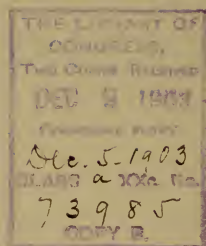 THE LIBRARY OF
CONGRESS,
TWO COPIES RECEIVED
DEC 9 1903
COPYRIGHT ENTRY
Dec. 5-1903
CLASS a XXc. No.
73985
COPY B.